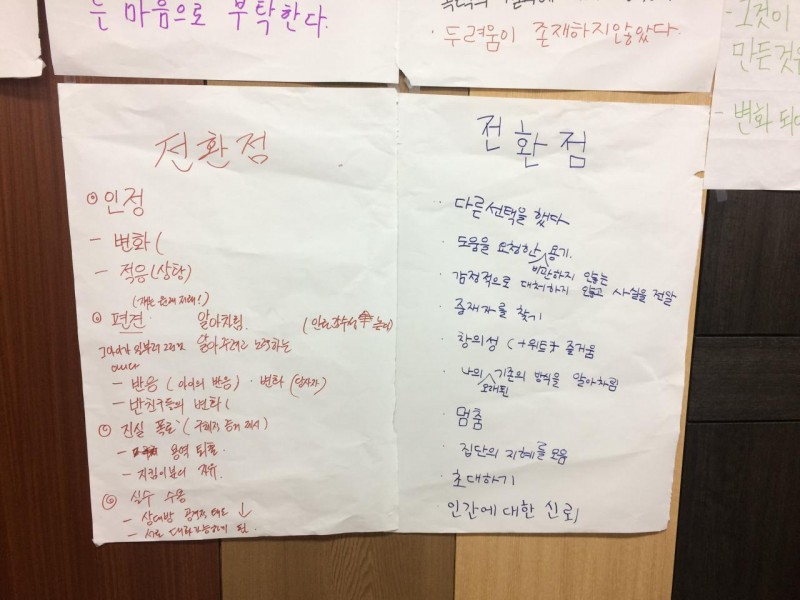 는 마음으로 부탁한다.
· 두려움이 존재하지않았다.
- 그것이
만든것을
- 변화 되다
전환점
인정
- 변화(
- 적응(상황)
편견 알아차림.
알아주려고 노력하는
- 반응 (아이의 반응) · 변화 (당사자)
- 반친구들의 변화(
진실 폭로
- 용역 퇴출.
- 지킴이분의 자유.
실수 수용
- 상대방 공격적 태도 ↓
- 서로 대화가능하게 됨.
전환점
· 다른선택을 했다
· 도움을 요청한 용기.
비난하지 않는
· 감정적으로 대처하지 않고 사실을 전달
· 중재자를 찾기
· 창의성 (+위트) 즐거움
· 나의 기존의 방식을 알아차림
오래된
· 멈춤
· 집단의 지혜를 모음
· 초대하기
· 인간에 대한 신뢰